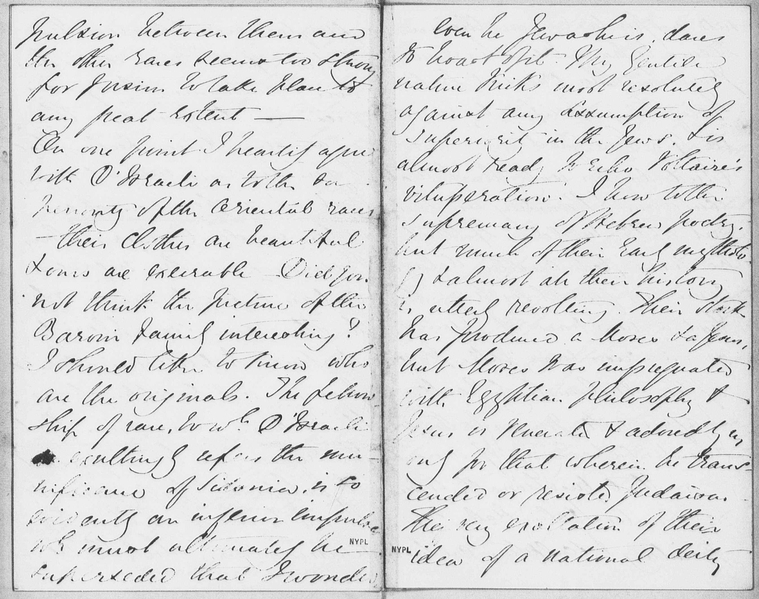 pulsion between them and
the other races seems too strong
for fusion to take place to
any great extent —
On one point I heartily agree
with D'Israeli as to the su-
periority of the Oriental races
— their clothes are beautiful
& ours are execrable — Did you
not think the picture of the
Baroni family interesting?
I should like to know who
are the originals. The fellow
ship of race, to wh. D'Israeli
exultingly refers the mu-
nificence of Sidonia, is so
evidently an inferior impulse
wh. must ultimately be
superseded that I wonder
NYPL
even he, Jew as he is, dares
to boast of it. My Gentile
nature kicks most resolutely
against any assumption of
superiority in the Jews, & is
almost ready to echo Voltaire's
vituperation. I bow to the
supremacy of Hebrew poetry,
but much of their early mytholo-
gy & almost all their history
is utterly revolting. Their stock
has produced a Moses & a Jesus,
but Moses was impregnated
with Egyptian philosophy &
Jesus is venerated & adored by us
only for that wherein he trans-
cended or resisted Judaism.
The very exaltation of their
idea of a national deity
NYPL